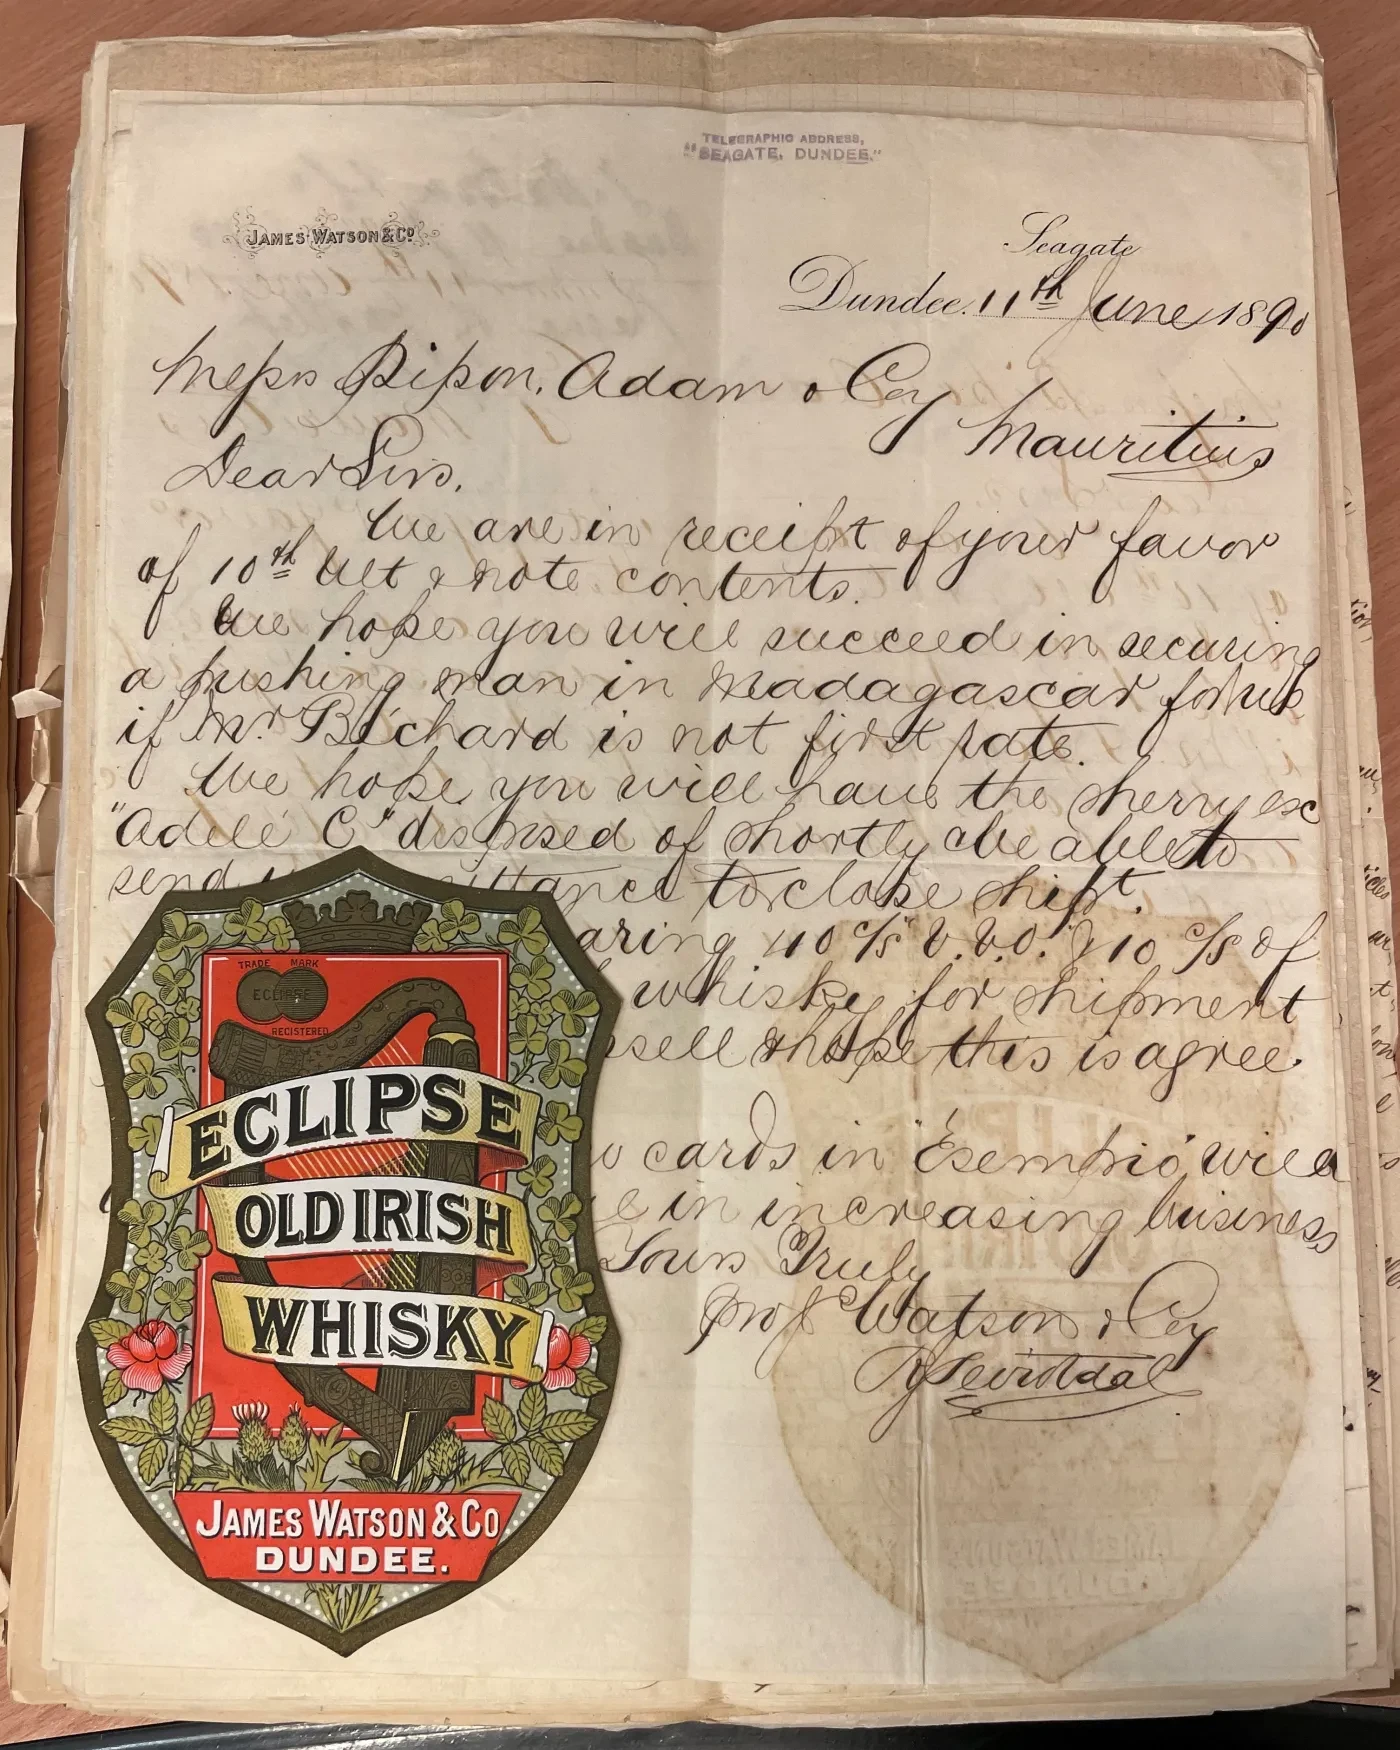 TELEGRAPHIC ADDRESS,
"SEAGATE, DUNDEE."
JAMES WATSON & Co.
Seagate
Dundee. 11th June 1890
Messrs Ripon, Adam & Coy
Mauritius
Dear Sirs.
We are in receipt of your favor
of 10th Ult & note contents.
We hope you will succeed in securing
a pushing man in Madagascar for us
if Mr. Bechard is not first rate.
We hope you will have the sherry ex
"Adele C" disposed of shortly & be able to
send to close shipt.
40 c/s V.V.O. & 10 c/s of
whisky for shipment
& hope this is agree.
cards in will
in increasing business
Yours Truly
Watson & Coy
TRADE MARK
ECLIPSE
REGISTERED
ECLIPSE
OLD IRISH
WHISKY
JAMES WATSON & Co
DUNDEE.